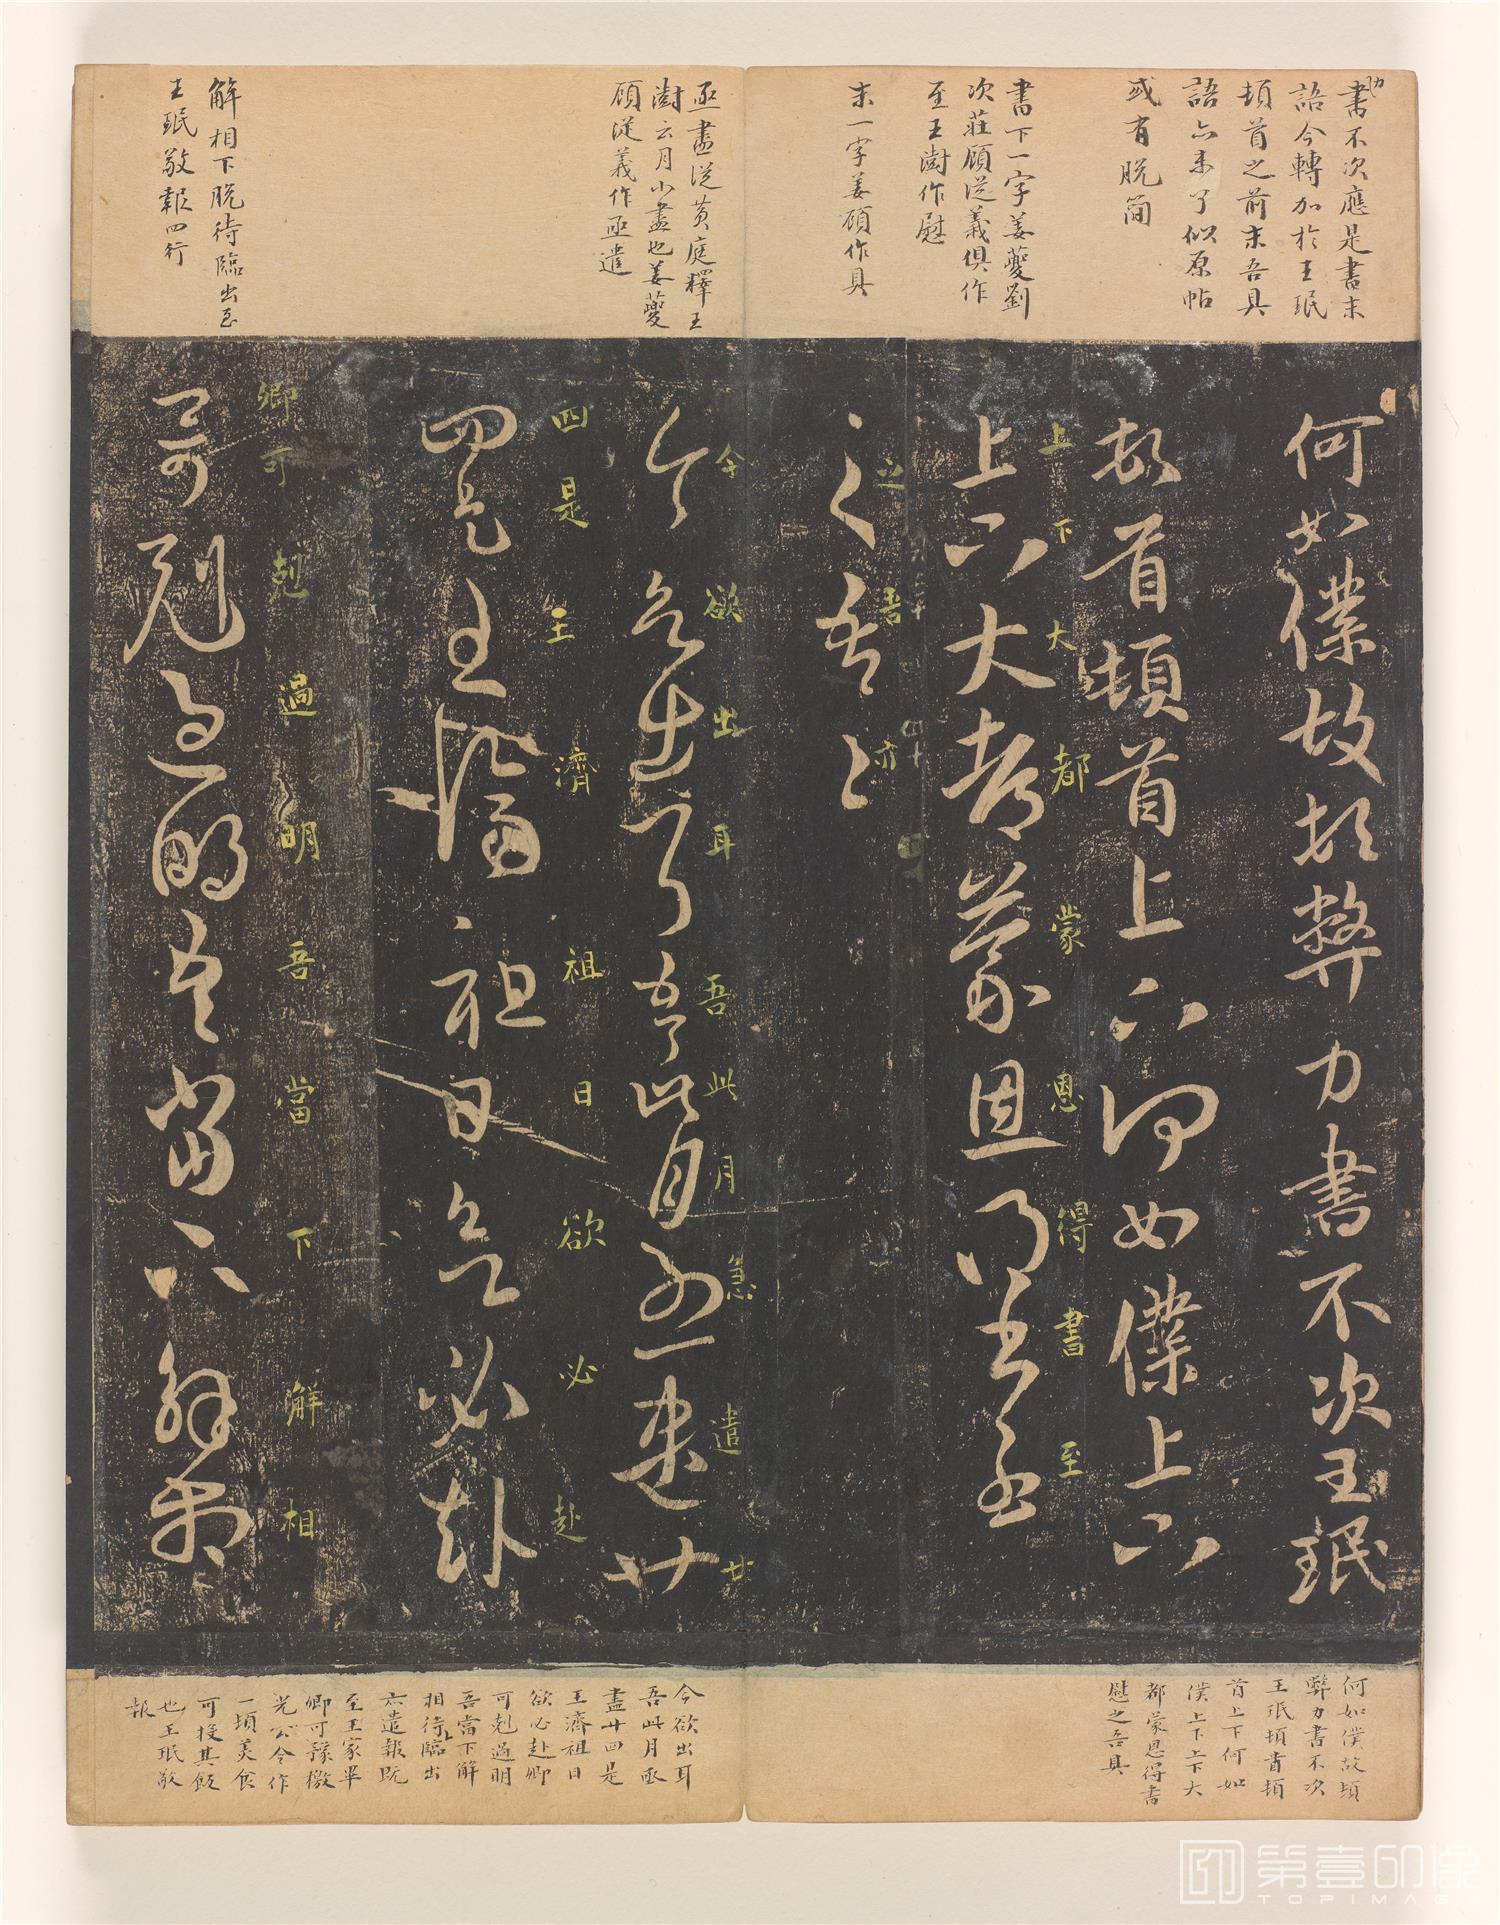 書不次應是書末
語今轉加於王珉
頓首之前末吾具
語亦未了似原帖
或有脱簡
書下一字姜夔劉
次莊顧從義俱作
至王澍作慰
末一字姜顧作具
亟盡從黄庭釋王
澍云月小盡也姜夔
顧從義作亟遣
解相下脱待臨出至
王珉敬報四行
何如僕故頓弊力書不次王珉
頓首頓首上下何如僕上下
上下大都蒙恩得書至
上下大都蒙恩得書至
之吾
之吾亦
今欲出耳吾此月亟遣廿
今欲出耳吾此月急遣廿
四是王濟祖日欲必赴
四是王濟祖日欲必赴
卿可剋過明吾當下解相
卿可剋過明吾當下解相
何如僕故頓
弊力書不次
王珉頓首頓
首上下何如
僕上下上下大
都蒙恩得書
慰之吾具
今欲出耳
吾此月亟
盡廿四是
王濟祖日
欲必赴卿
可剋過明
吾當下解
相待臨出
亦遣報既
至王家畢
卿可豫檄
光公令作
一頓美食
可投其飯
也王珉敬
報
第壹印像
TOPIMAGE